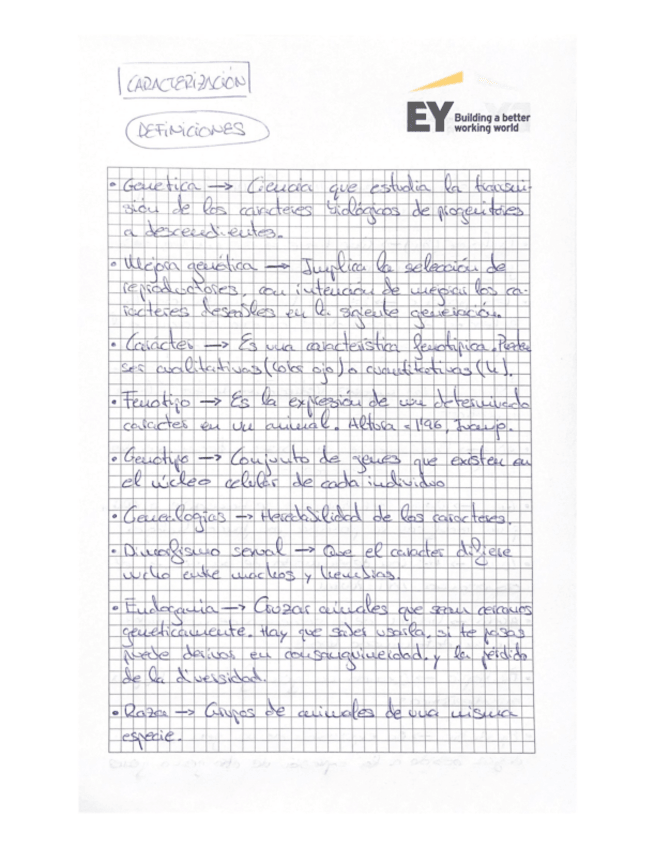 CARACTERIZACIÓN
DEFINICIONES
EY Building a better
working world
• Genética → Ciencia que estudia la transmi-
sión de los caracteres biológicos de progenitores
a descendientes.
• Mejora genética → Implica la selección de
reproductores, con intención de mejorar los ca-
racteres deseables en la siguiente generación.
• Carácter → Es una característica fenotípica. Puede
ser cualitativas (color ojo) o cuantitativas (
• Fenotipo → Es la expresión de un determinado
carácter en un animal. Altura = 1'96,
• Genotipo → Conjunto de genes que existen en
el núcleo celular de cada individuo
• Genealogías → Heredabilidad de los caracteres.
• Dimorfismo sexual → Que el carácter difiere
mucho entre machos y hembras.
• Endogamia → Cruzar animales que sean cercanos
genéticamente. Hay que saber usarla, si te pasas
puede derivar en consanguineidad, y la pérdida
de la diversidad.
• Razas → Grupos de animales de una misma
especie.